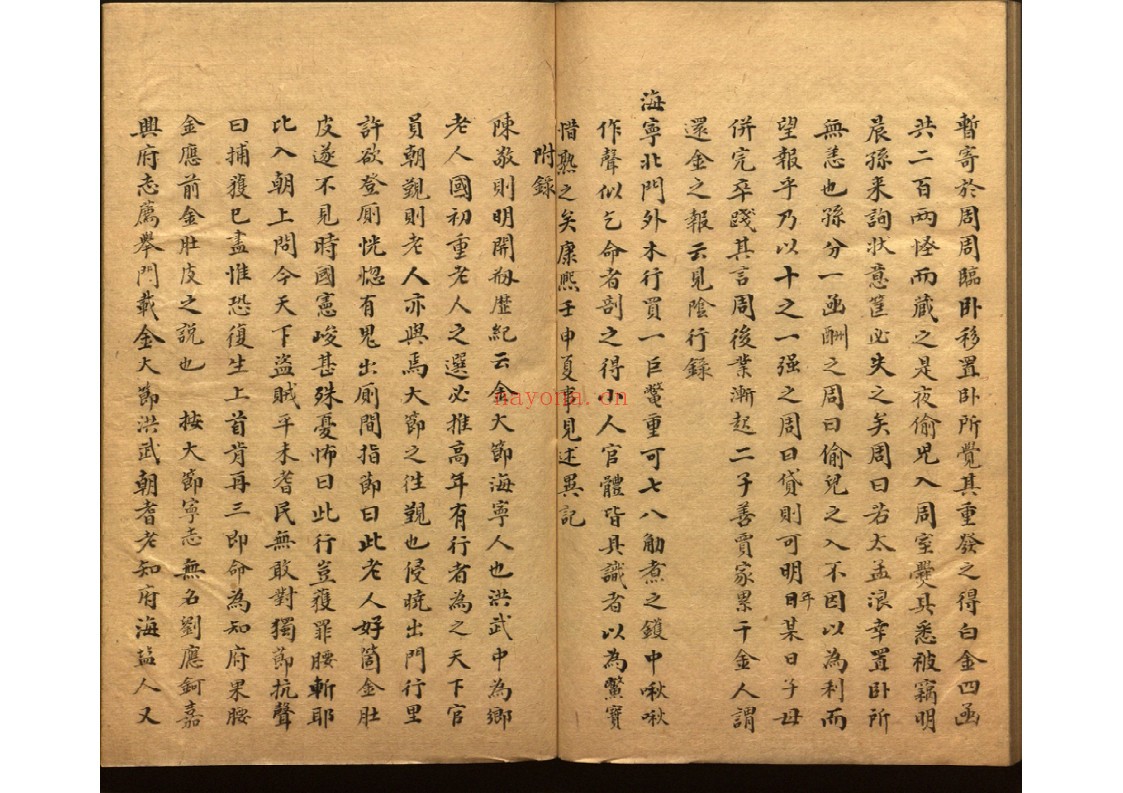 暫寄於周周臨卧移置卧所覺其重發之得白金四函
共二百两怪而藏之是夜偷児入周室爨具悉被竊明
晨孫来詢状意筐必失之矣周曰若太孟浪幸置卧所
無恙也孫分一函酬之周曰偷兒之入不因以為利而
望報乎乃以十之一强之周曰貸則可明年日某日子母
併完卒踐其言周後業漸起二子善賈家累千金人謂
還金之報云見陰行錄
海寧北門外木行買一巨鱉重可七八觔煮之鑊中啾啾
作聲似乞命者剖之得小人官體皆具識者以為鱉寳
惜熟之矣康熙壬申夏事見述異記
附錄
陳敬則明開刱歴紀云金大節海寧人也洪武中為鄉
老人國初重老人之選必推高年有行者為之天下官
員朝覲則老人亦與焉大節之徃覲也侵晓出門行里
許欲登厠恍惚有鬼出厠間指節曰此老人好箇金肚
皮遂不見時國憲峻甚殊憂怖曰此行豈獲罪腰斬耶
比入朝上問今天下盗賊平未耆民無敢對獨節抗聲
曰捕獲已盡惟恐復生上首肯再三即命為知府果腰
金應前金肚皮之説也 按大節寧志無名劉應鈳嘉
興府志薦舉門載金大節洪武朝耆老知府海盐人又
nayona.cn